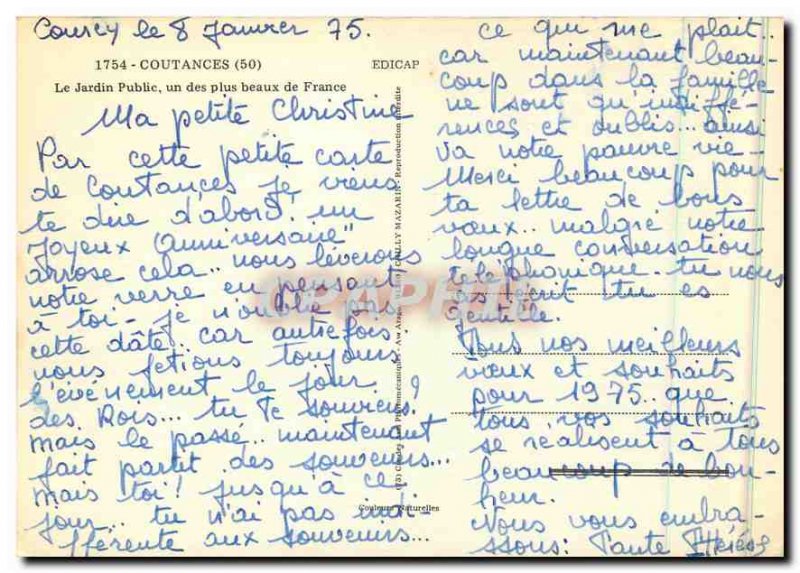 Courcy le 8 Janvier 75.
1754 - COUTANCES (50)
EDICAP
Le Jardin Public, un des plus beaux de France
Ma petite Christine
Par cette petite carte
de Coutances je viens
te dire d'abord "un
Joyeux Anniversaire"
arrose cela.. nous lèverons
notre verre en pensant
à toi - je n'oublie pas
cette dâte.. car autrefois
nous fetions toujours
l'évènement le jour
des Rois... tu te souviens?
mais le passé.. maintenant
fait partit des souvenirs...
mais toi! jusqu'à ce
jour... tu n'ai pas indi-
fférente aux souvenirs...
MAZARIN - Reproduction interdite
Couleurs Naturelles
ce qui me plait..
car maintenant beau-
coup dans la famille
ne sont qu'indiffé-
rences et oublis... ainsi
va notre pauvre vie -
Merci beaucoup pour
ta lettre de bons
vœux.. malgré notre
longue conversation
téléphonique. tu nous
as écrit tu es
gentille.
Tous nos meilleurs
vœux et souhaits
pour 1975.. que
tous vos souhaits
se réalisent à tous
beaucoup de bon-
heur.
Nous vous embra-
ssons: Tante Thérèse